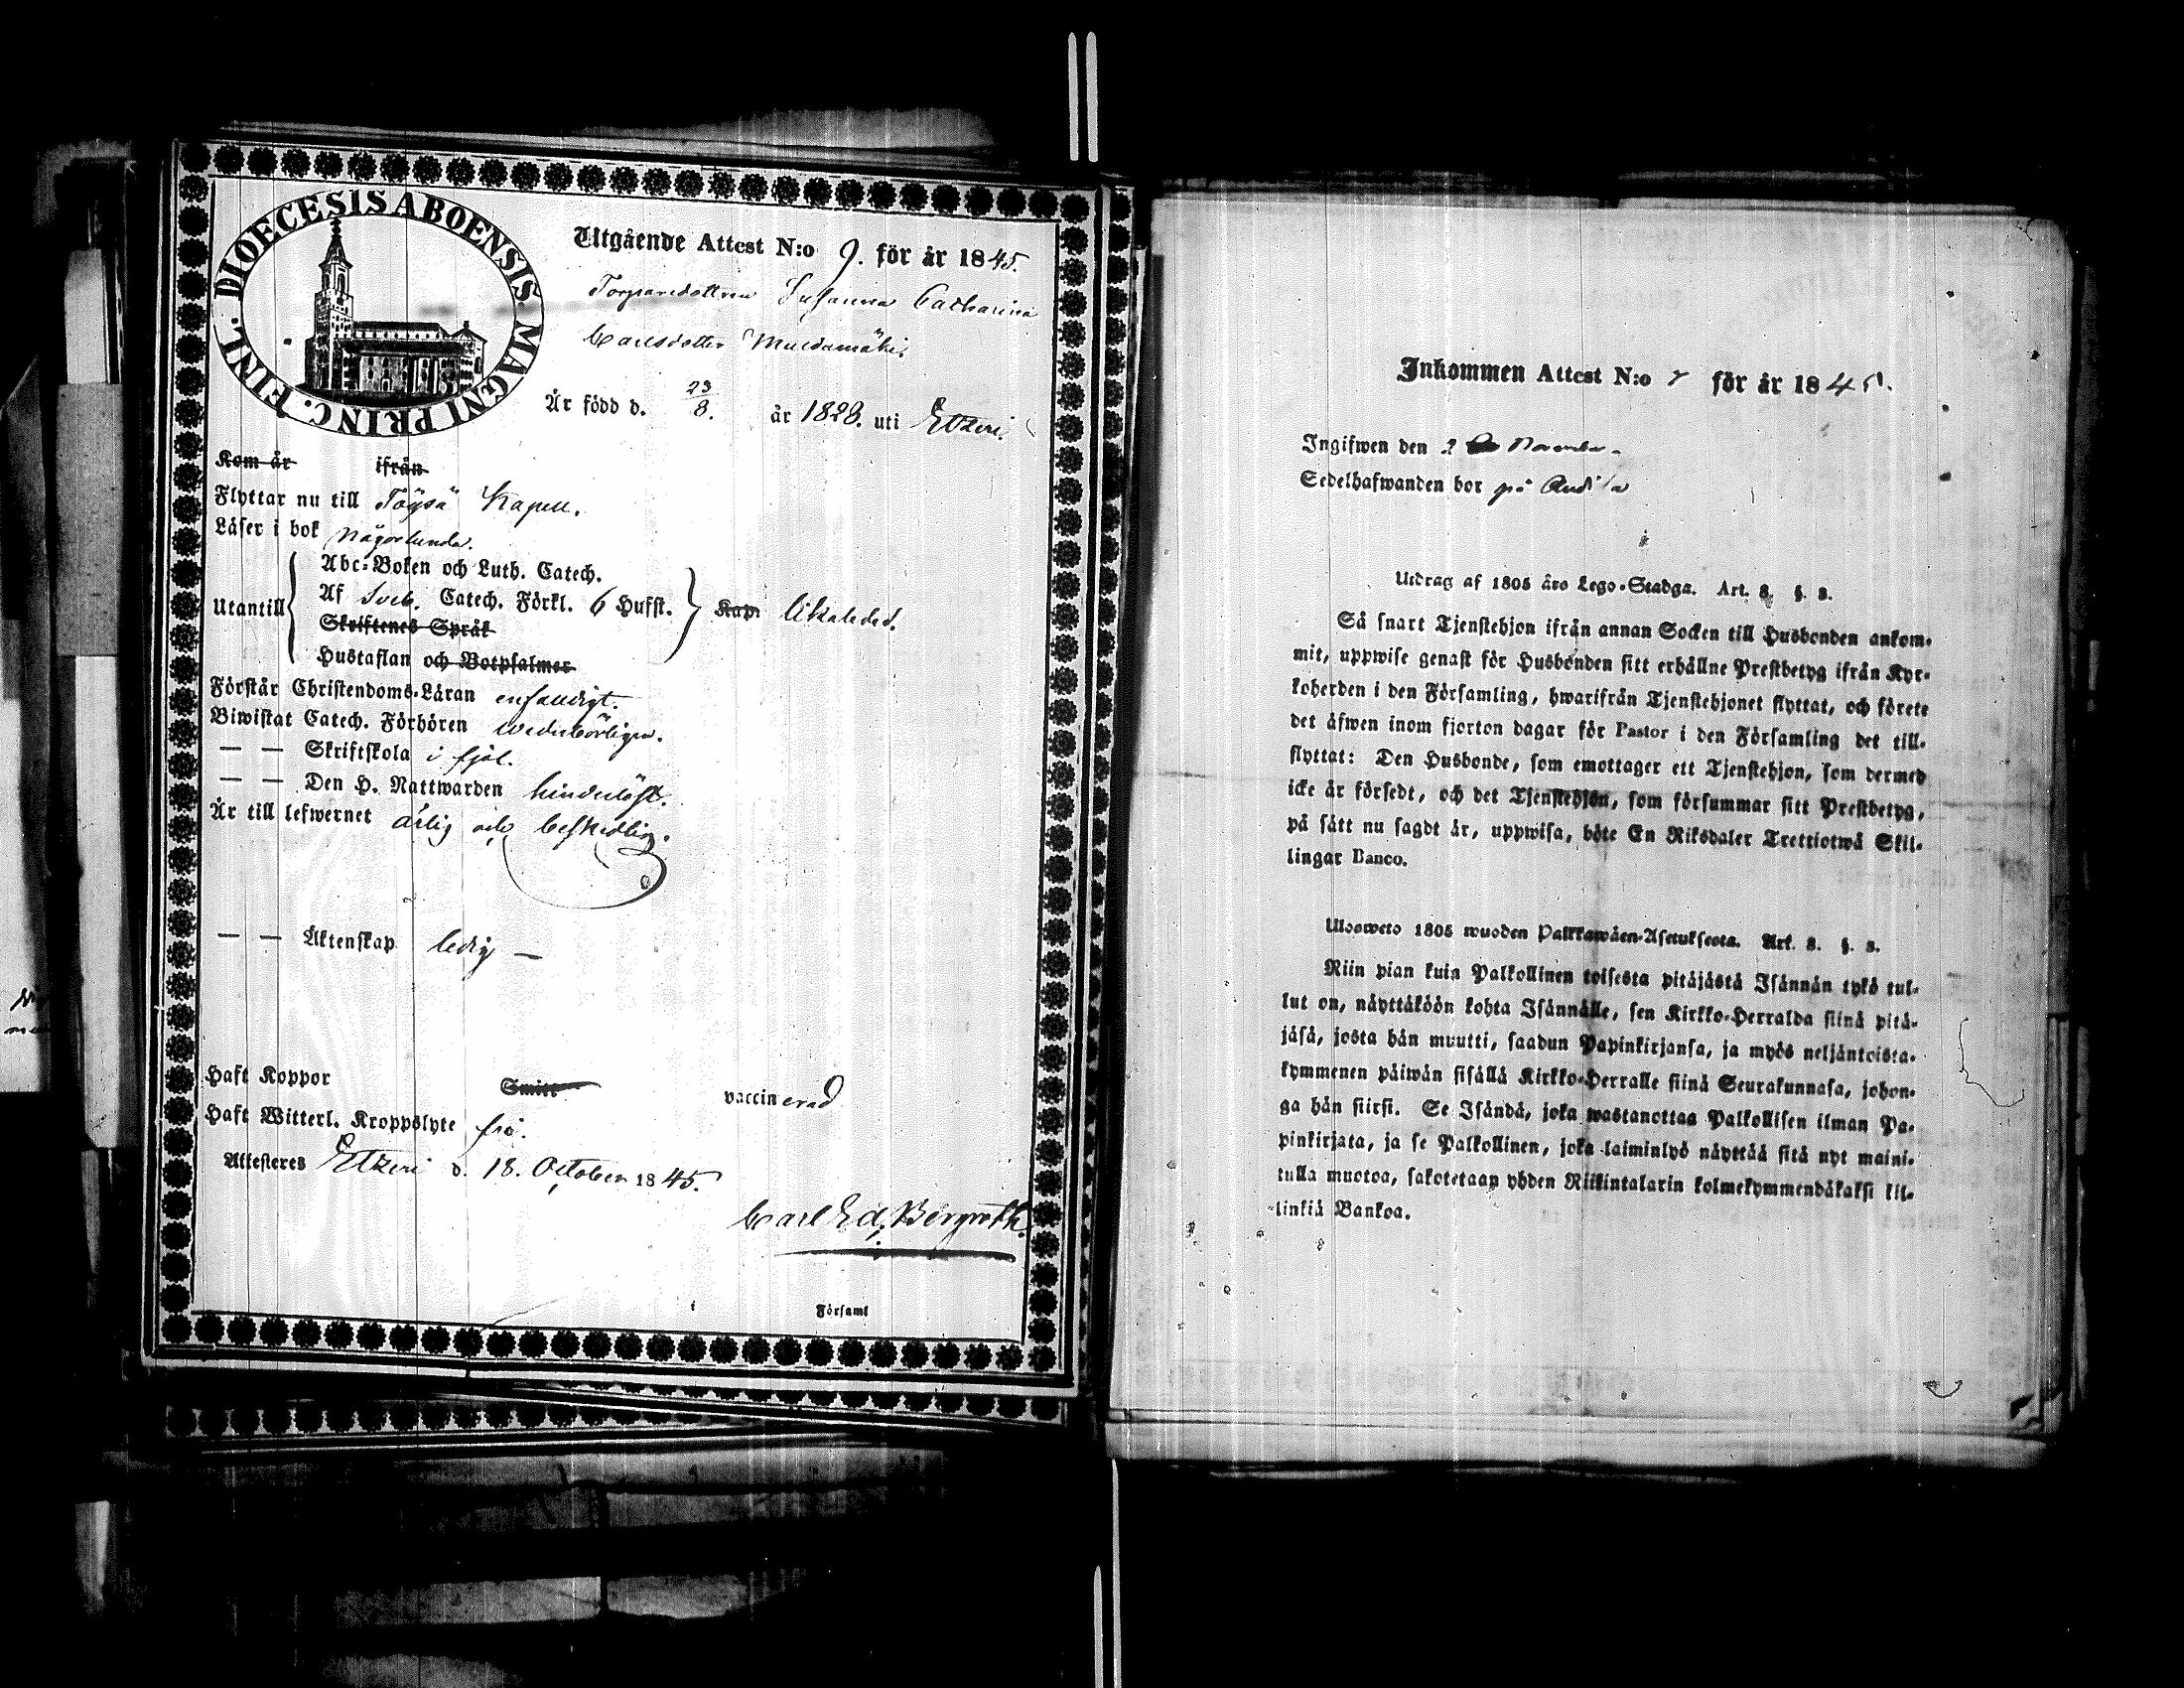 DIOECESIS ABOENSIS. MAGNI PRINC. FINL.
Utgående Attest N:o 9. för år 1845.
Torparedottren Susanna Catharina
Carlsdotter
Är född d. 23/8. år 1828. uti Etzeri.
Kom år ifrån
Flyttar nu till Töysä Kapell.
Läser i bok någorlunda.
Utantill
Abc-Boken och Luth. Catech.
Af Sveb. Catech. Förkl. 6 Hufst.
Skriftenes Språk
Hustaflan och Botpsalmer
Kan likaledes.
Förstår Christendoms-Läran enfaldigt.
Biwistat Catech. Förhören wederbörligen.
— — Skriftskola i fjol.
— — Den H. Nattwarden hinderlöst.
Är till lefwernet ärlig och beskedlig.
— — Äktenskap ledig —
Haft Koppor Smitt vaccinerad
Haft Witterl. Kroppslyte fri.
Attesteres Etzeri d. 18. October 1845.
Carl Ed. Bergroth.
i Församl
Inkommen Attest N:o för år 1845.
Ingifwen den 2 November
Sedelhafwanden bor på
Utdrag af 1805 års Lego-Stadga. Art. 8. §. 8.
Så snart Tjenstehjon ifrån annan Socken till Husbonden ankom-
mit, uppwise genast för Husbonden sitt erhållne Prestbetyg ifrån Kyr-
koherden i den Församling, hwarifrån Tjenstehjonet flyttat, och förete
det äfwen inom fjorton dagar för Pastor i den Församling det till-
flyttat: Den Husbonde, som emottager ett Tjenstehjon, som dermed
icke är försedt, och det Tjenstehjon, som försummar sitt Prestbetyg,
på sätt nu sagdt är, uppwisa, böte En Riksdaler Trettiotwå Skil-
lingar Banco.
Uloosweto 1805 wuoden Palkkawäen-Asetuksesta. Art. 8. §. 8.
Niin pian kuin Palkollinen toisesta pitäjästä Isännän tykö tul-
lut on, näyttäköön kohta Isännälle, sen Kirkko-Herralda siinä pitä-
jäsä, josta hän muutti, saadun Papinkirjansa, ja myös neljäntoista-
kymmenen päiwän sisällä Kirkko-Herralle siinä Seurakunnasa, johon-
ga hän siirsi. Se Isändä, joka wastanottaa Palkollisen ilman Pa-
pinkirjata, ja se Palkollinen, joka laiminlyö näyttää sitä nyt maini-
tulla muotoa, sakotetaan yhden Riikintalarin kolmekymmendäkaksi kil-
linkiä Bankoa.